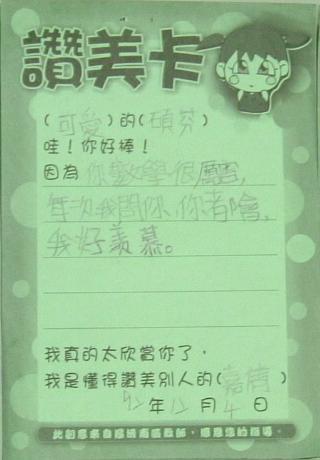 讚美卡
(可愛)的(碩芬)
哇！你好棒！
因為你數學很厲害,
每次我問你,你都會,
我好羨慕。
我真的太欣當你了，
我是懂得讚美別人的(嘉倩)
92年12月4日